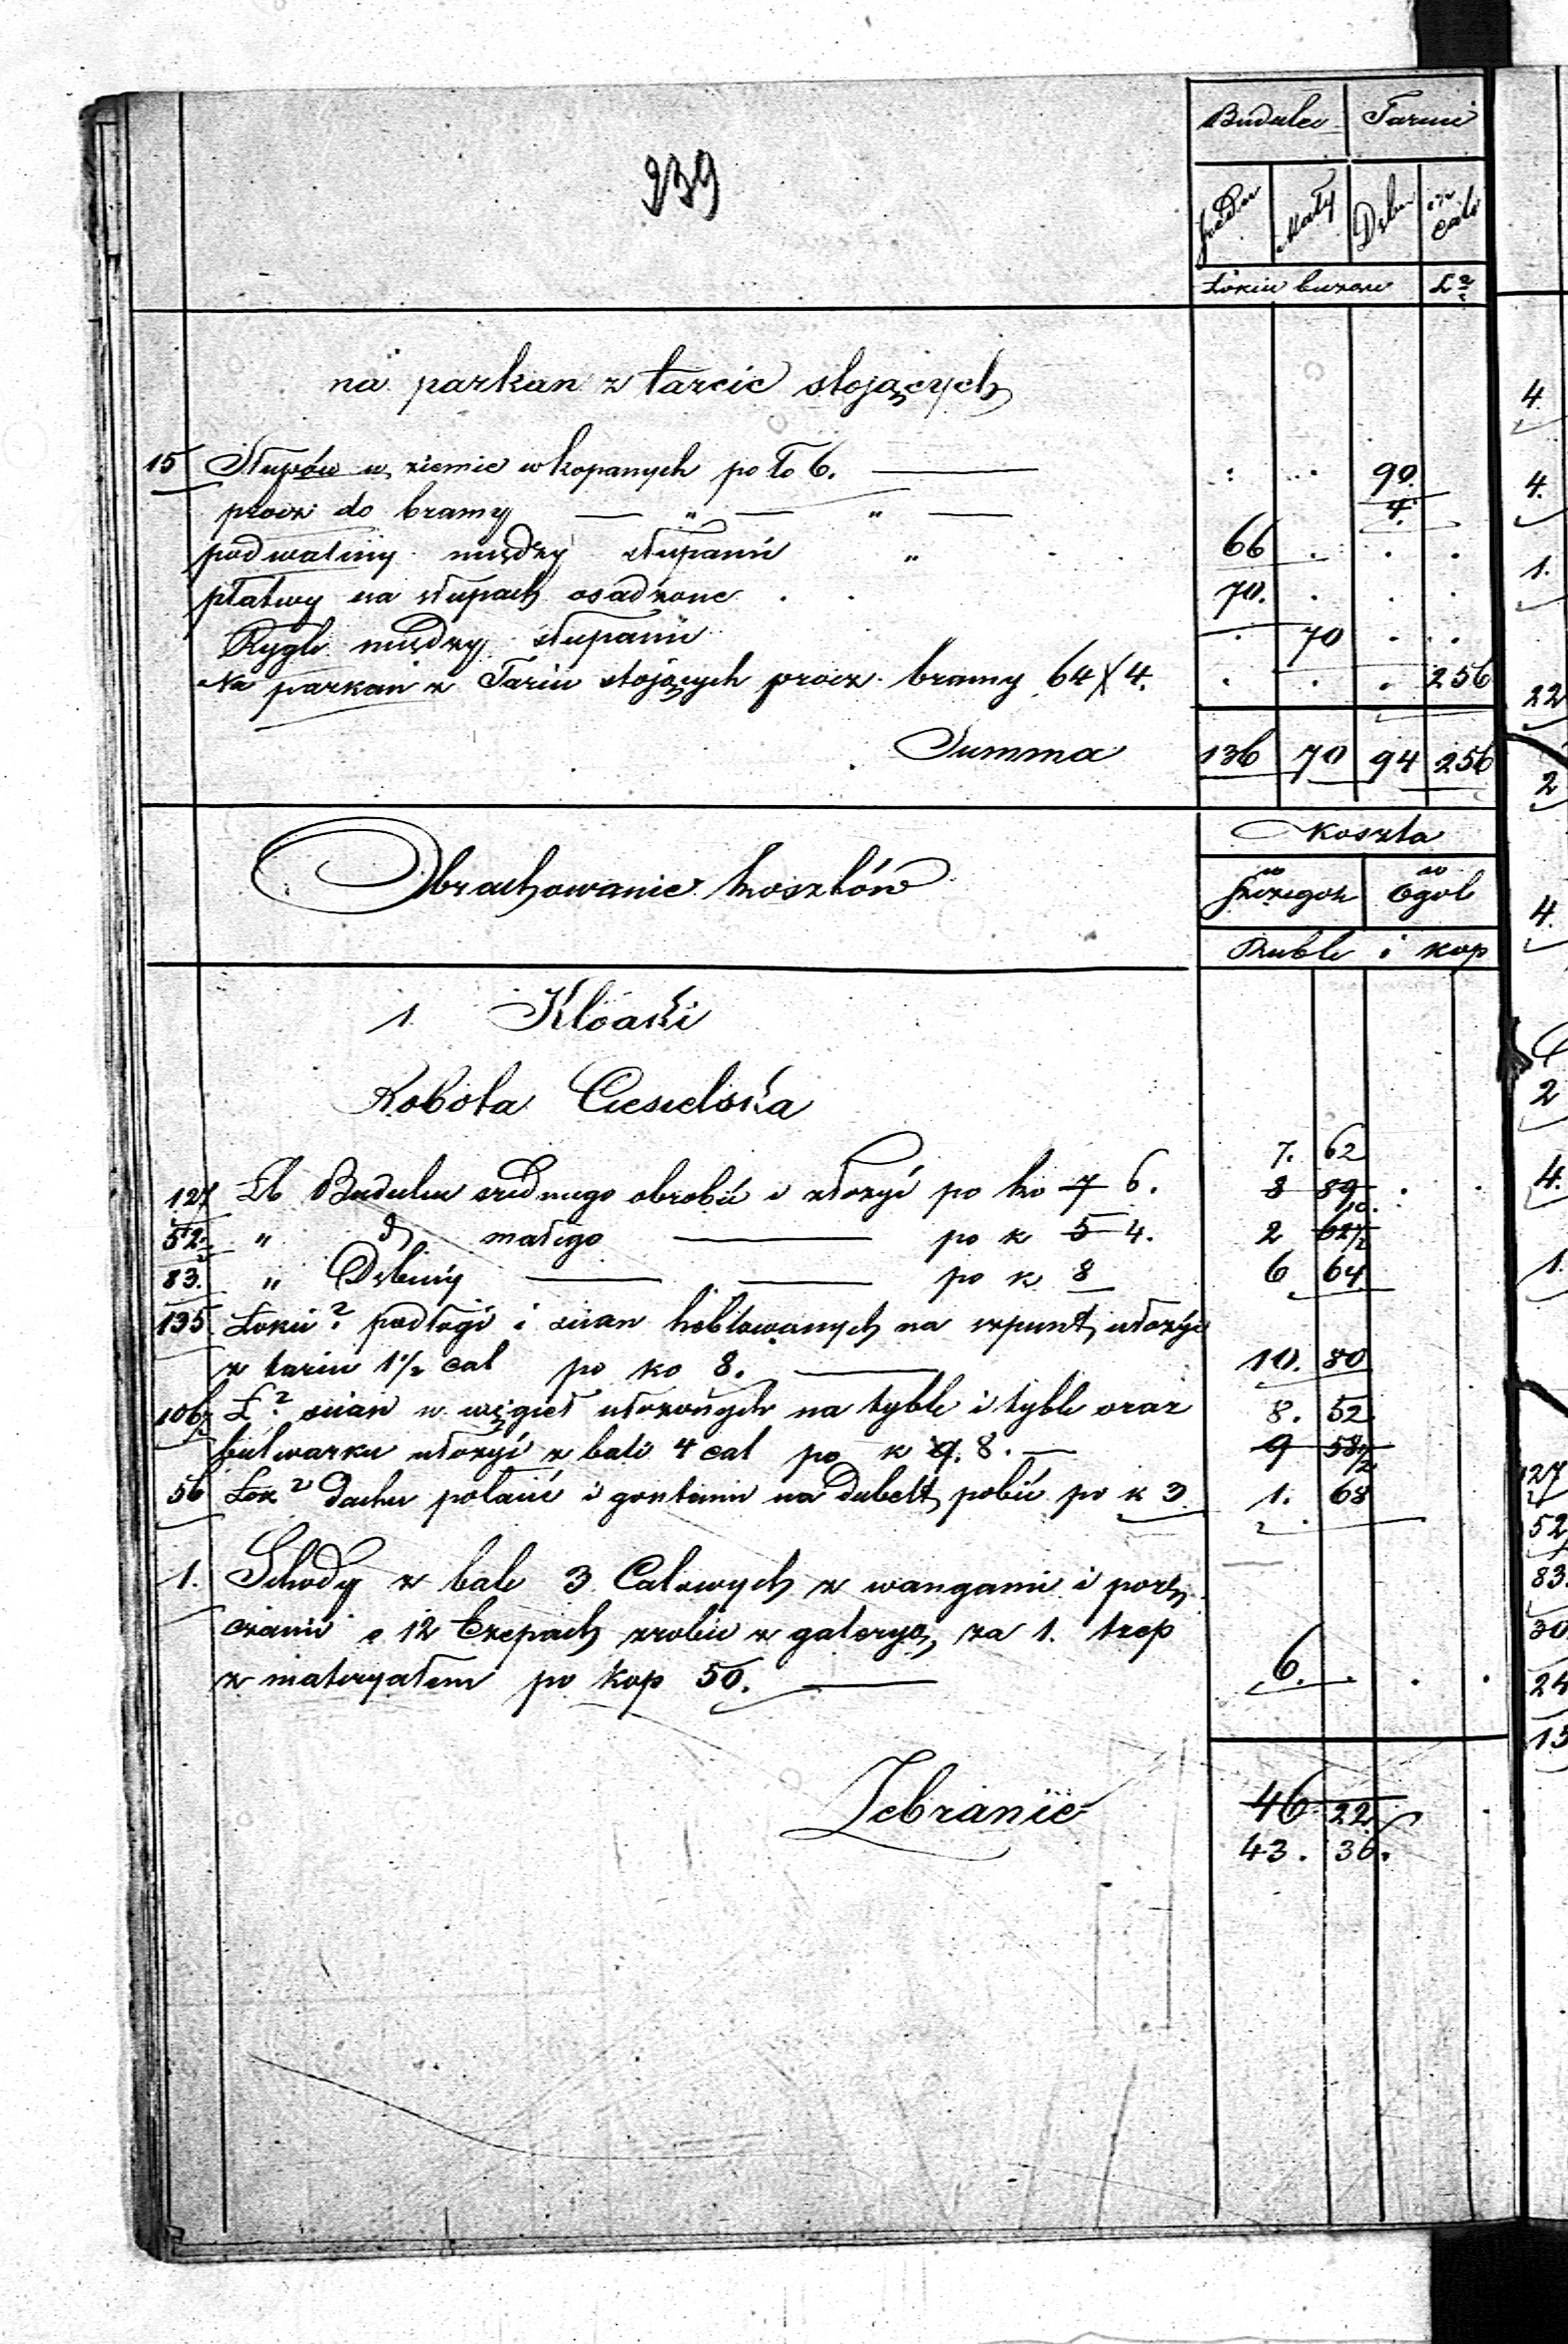 239
Budulcu Tarcic
średn mały Dębu cal
Łokcie bierzące Ł²
na parkan z tarcic stojących
15 Słupów w ziemię wkopanych po ło 6. — : . 90.
prócz do bramy — " — " — 4.
podwaliny między słupami " 66 . . .
płatwy na słupach osadzone . . 70. . . .
Rygle między słupami . 70 . .
Na parkan z Tarcic stojących prócz bramy 64 X 4. . . . 256
Summa 136 70 94 256
Obrachowanie kosztów
Koszta
Szczegół Ogół
Ruble i kop
1. Kloaki
Robota Ciesielska
7. 62
127 Łb Budulcu średniego obrobić i złożyć po ko 7 6. 8 89 . .
52 " d małego — po k 5 4. 2
83. " Dębiny — — po k 8 6 64
135 Łokci² podłogi i ścian heblowanych na szpunt ułożyć
z tarcic 1½ cal po ko 8. — 10. 80
106½ Ł² ścian w węgieł ułożonych na tyble i tyble oraz 8. 52
bulwarku ułożyć z bali 4 cal po k 9. 8. — 9 58½
56 Łok² dachu połacić i gontami na dubelt pobić po k 3 1. 68
1. Schody z bali 3 Calowych z wangami i porę
czami o 12 trepach zrobić z galeryą za 1. trep
z materyałem po kop 50. — 6. . . .
Zebranie 46 22
43. 36.
4.
4.
1.
22
2
4.
2
4.
1.
127
52
83.
30
24
13